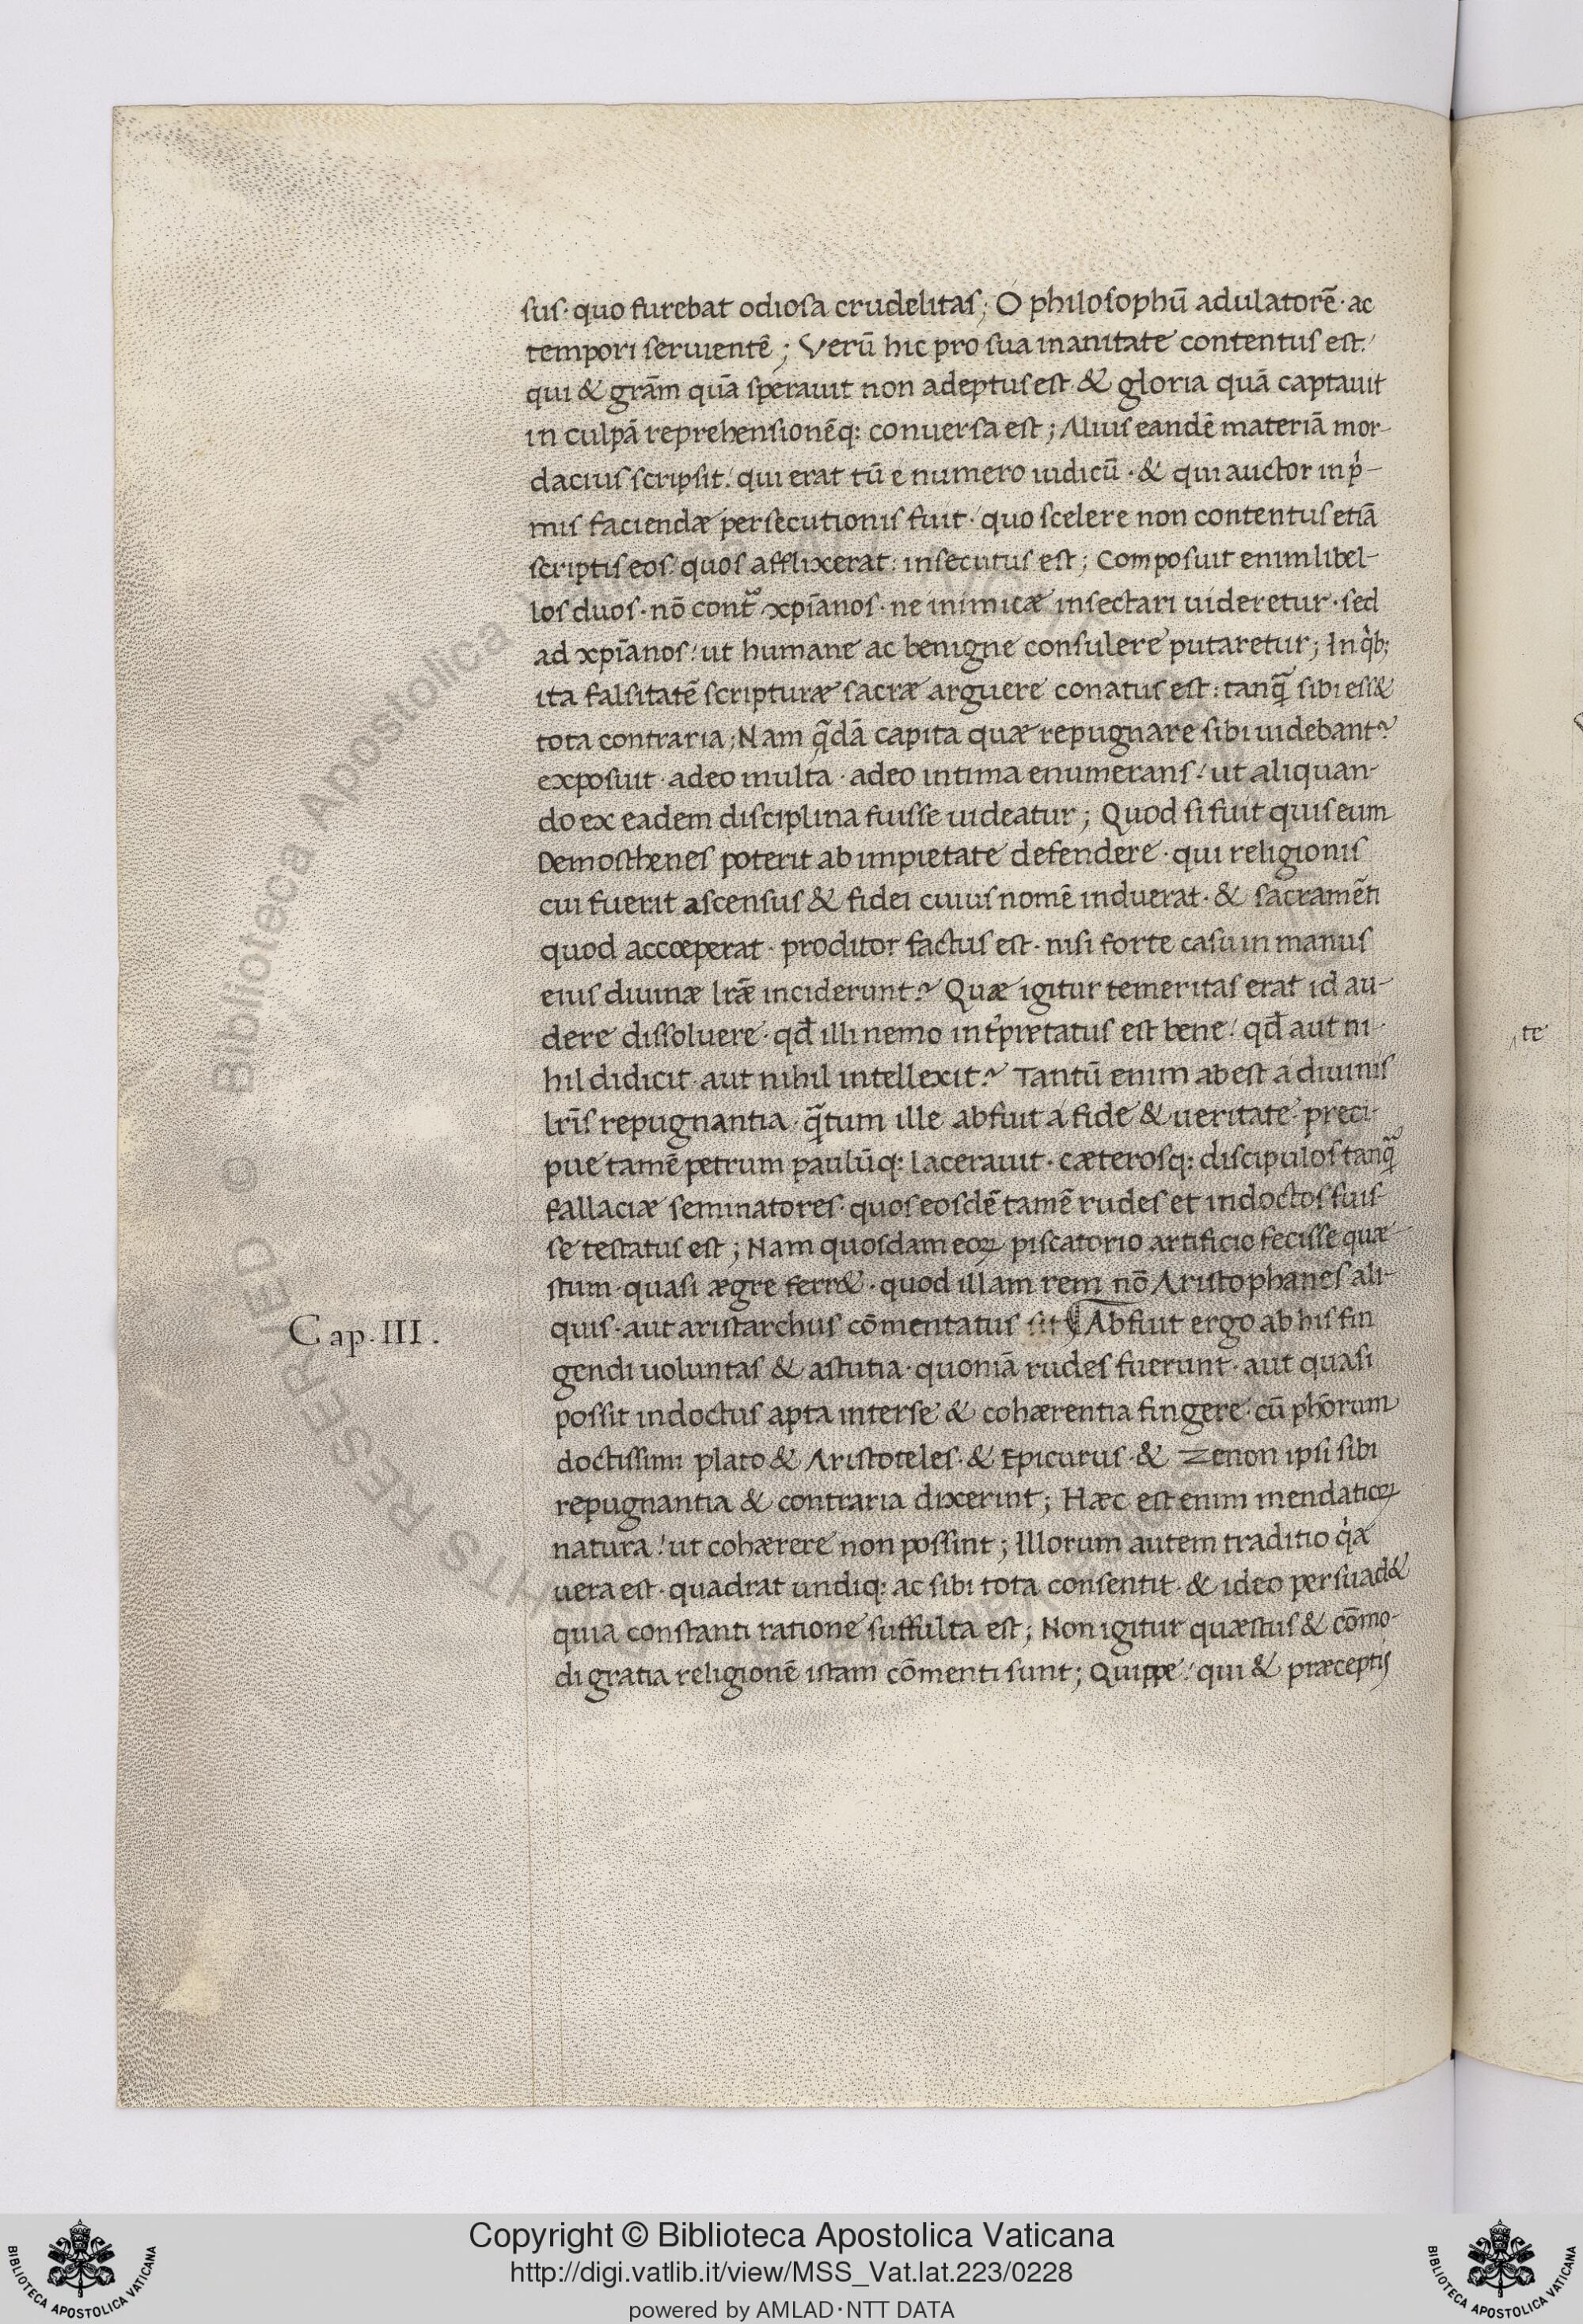 sus· quo furebat odiosa crudelitas; O philosophū adulatorē· ac
tempori seruientē; Verū hic pro sua inanitate contentus est!
qui & grām quā sperauit non adeptus est & gloria quā captauit
in culpā reprehensionēq: conuersa est; Alius eandē materiā mor-
dacius scripsit! qui erat tū e numero iudicū· & qui auctor in p̄-
mis faciendæ persecutionis fuit· quo scelere non contentus etiā
scriptis eos! quos afflixerat: insecutus est; Composuit enim libel-
los duos· nō contᵃ xpīanos· ne inimicæ insectari uideretur· sed
ad xpīanos! ut humane ac benigne consulere putaretur; In qͥb;
ita falsitatē scripturæ sacræ arguere conatus est: tanq̄ sibi ess&
tota contraria; Nam q̄dā capita quæ repugnare sibi uidebantʳ
exposuit· adeo multa· adeo intima enumerans! ut aliquan-
do ex eadem disciplina fuisse uideatur; Quod si fuit quis eum
Demosthenes poterit ab impietate defendere· qui religionis
cui fuerit ascensus & fidei cuius nomē induerat· & sacramēti
quod accœperat· proditor factus est· nisi forte casu in manus
eius diuinæ lrǣ inciderunt? Quæ igitur temeritas erat id au-
dere dissoluere· qđ illi nemo int̓pretatus est bene! qđ aut ni-
hil didicit· aut nihil intellexit? Tantū enim abest a diuinis
lrīs repugnantia· q̄tum ille abfuit a fide & ueritate· preci-
pue tamē petrum paulūq: lacerauit· cæterosq: discipulos tanq̄
fallaciæ seminatores· quos eosdē tamē rudes et indoctos fuis-
se testatus est; Nam quosdam eoꝝ piscatorio artificio fecisse quæ-
stum· quasi ægre ferr&· quod illam rem nō Aristophanes ali-
quis· aut aristarchus cōmentatus sit ¶ Abfuit ergo ab his fin
Cap. III.
gendi uoluntas & astutia· quoniā rudes fuerunt· aut quasi
possit indoctus apta inter se & cohærentia fingere! cū phōrum
doctissimi plato & Aristoteles· & Epicurus· & Zenon ipsi sibi
repugnantia & contraria dixerint; Hæc est enim mendatioꝝ
natura! ut cohærere non possint; Illorum autem traditio qͥa
uera est· quadrat undiq: ac sibi tota consentit· & ideo persuad&
quia constanti ratione suffulta est; Non igitur quæstus & cōmo-
di gratia religionē istam cōmenti sunt; Quippe! qui & præceptis
te
Copyright © Biblioteca Apostolica Vaticana
http://digi.vatlib.it/view/MSS_Vat.lat.223/0228
powered by AMLAD·NTT DATA
BIBLIOTECA APOSTOLICA VATICANA
BIBLIOTECA APOSTOLICA VATICANA